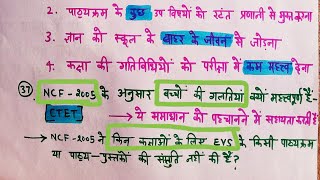 2. पाठ्यक्रम के कुछ उप विषयों को रटंत प्रणाली से मुक्त कराना
3. ज्ञान को स्कूल के बाहर के जीवन से जोड़ना
4. कक्षा की गतिविधियों को परीक्षा में कम महत्व देना
37 NCF-2005 के अनुसार बच्चों की गलतियां क्यों महत्वपूर्ण हैं-
CTET → ये समाधान को पहचानने में सहायता करती है
→ NCF-2005 ने किन कक्षाओं के लिए EVS के किसी पाठ्यक्रम
या पाठ्य-पुस्तकों की संस्तुति नहीं की है?